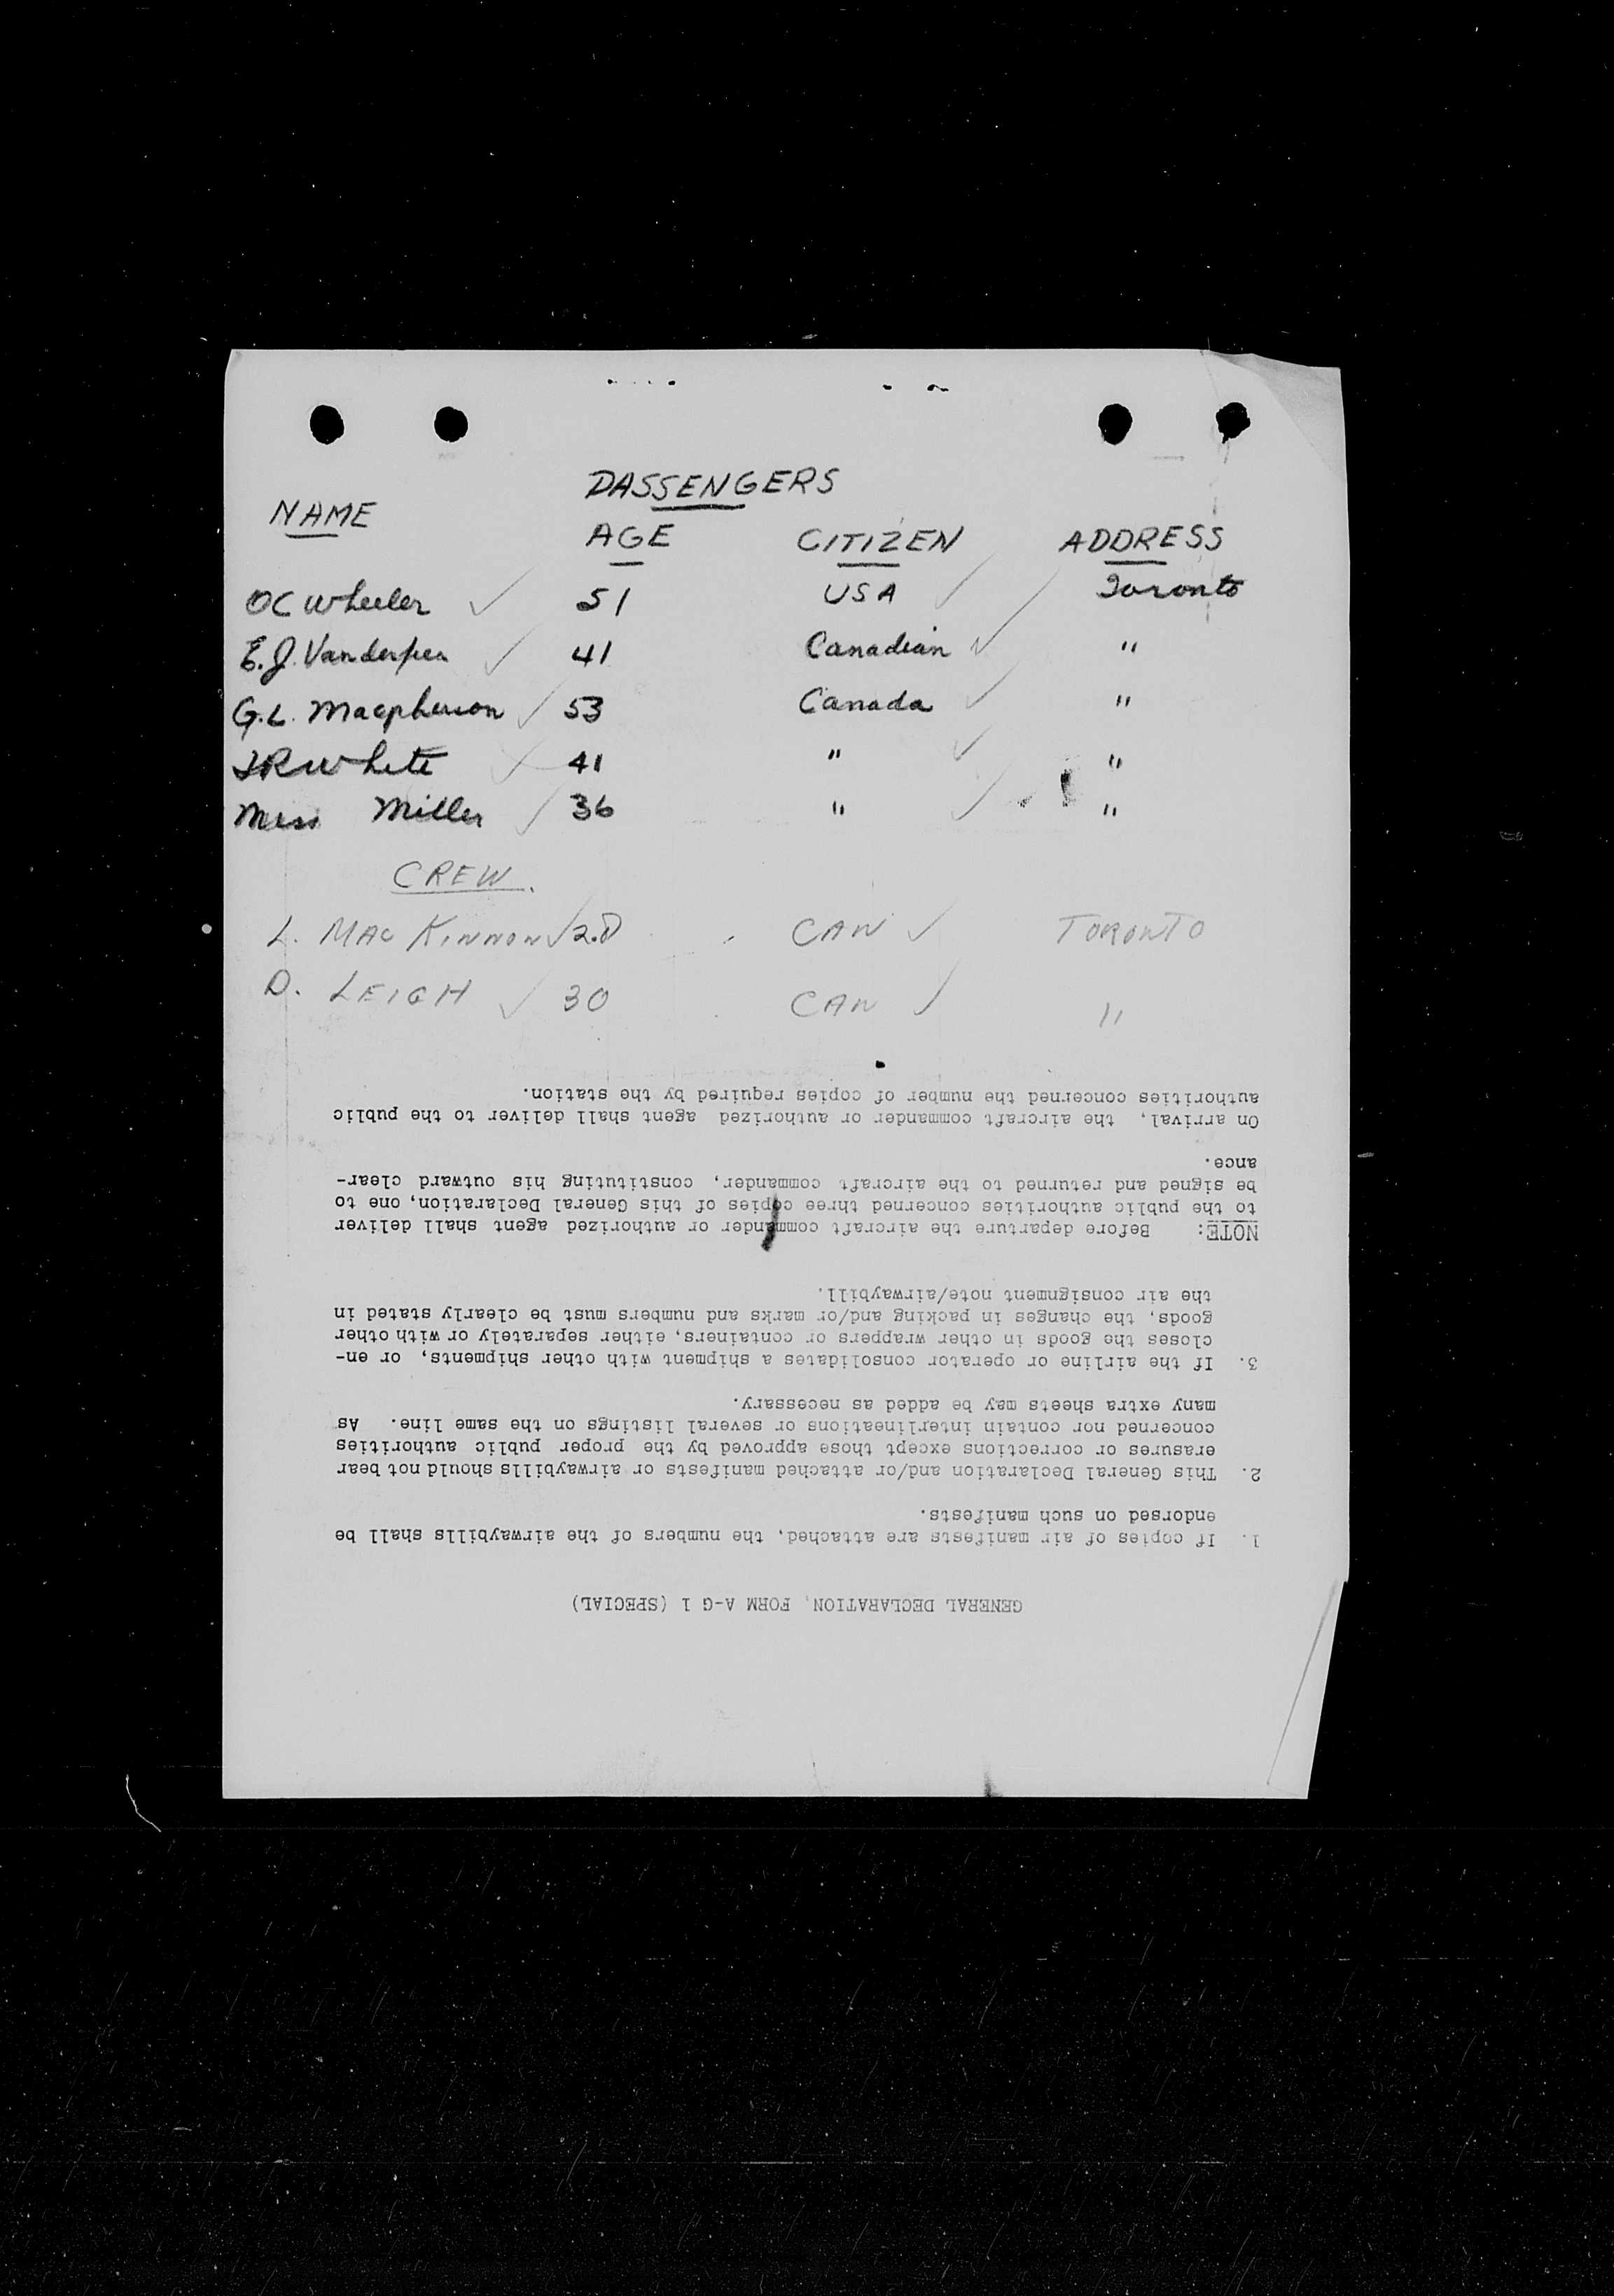 PASSENGERS
NAME AGE CITIZEN ADDRESS
OC Wheeler ✓ 51 USA ✓ Toronto
E.J. Vanderpen ✓ 41 Canadian ✓ "
G.L. Macpherson ✓ 53 Canada ✓ "
White ✓ 41 " ✓ "
Miss Miller ✓ 36 " ✓ "
CREW.
L. MAC KINNON ✓ 28 CAN ✓ TORONTO
D. LEIGH ✓ 30 CAN ✓ "
GENERAL DECLARATION, FORM A-G 1 (SPECIAL)
1. If copies of air manifests are attached, the numbers of the airwaybills shall be
endorsed on such manifests.
2. This General Declaration and/or attached manifests or airwaybills should not bear
erasures or corrections except those approved by the proper public authorities
concerned nor contain interlineations or several listings on the same line. As
many extra sheets may be added as necessary.
3. If the airline or operator consolidates a shipment with other shipments, or en-
closes the goods in other wrappers or containers, either separately or with other
goods, the changes in packing and/or marks and numbers must be clearly stated in
the air consignment note/airwaybill.
NOTE: Before departure the aircraft commander or authorized agent shall deliver
to the public authorities concerned three copies of this General Declaration, one to
be signed and returned to the aircraft commander, constituting his outward clear-
ance.
On arrival, the aircraft commander or authorized agent shall deliver to the public
authorities concerned the number of copies required by the station.